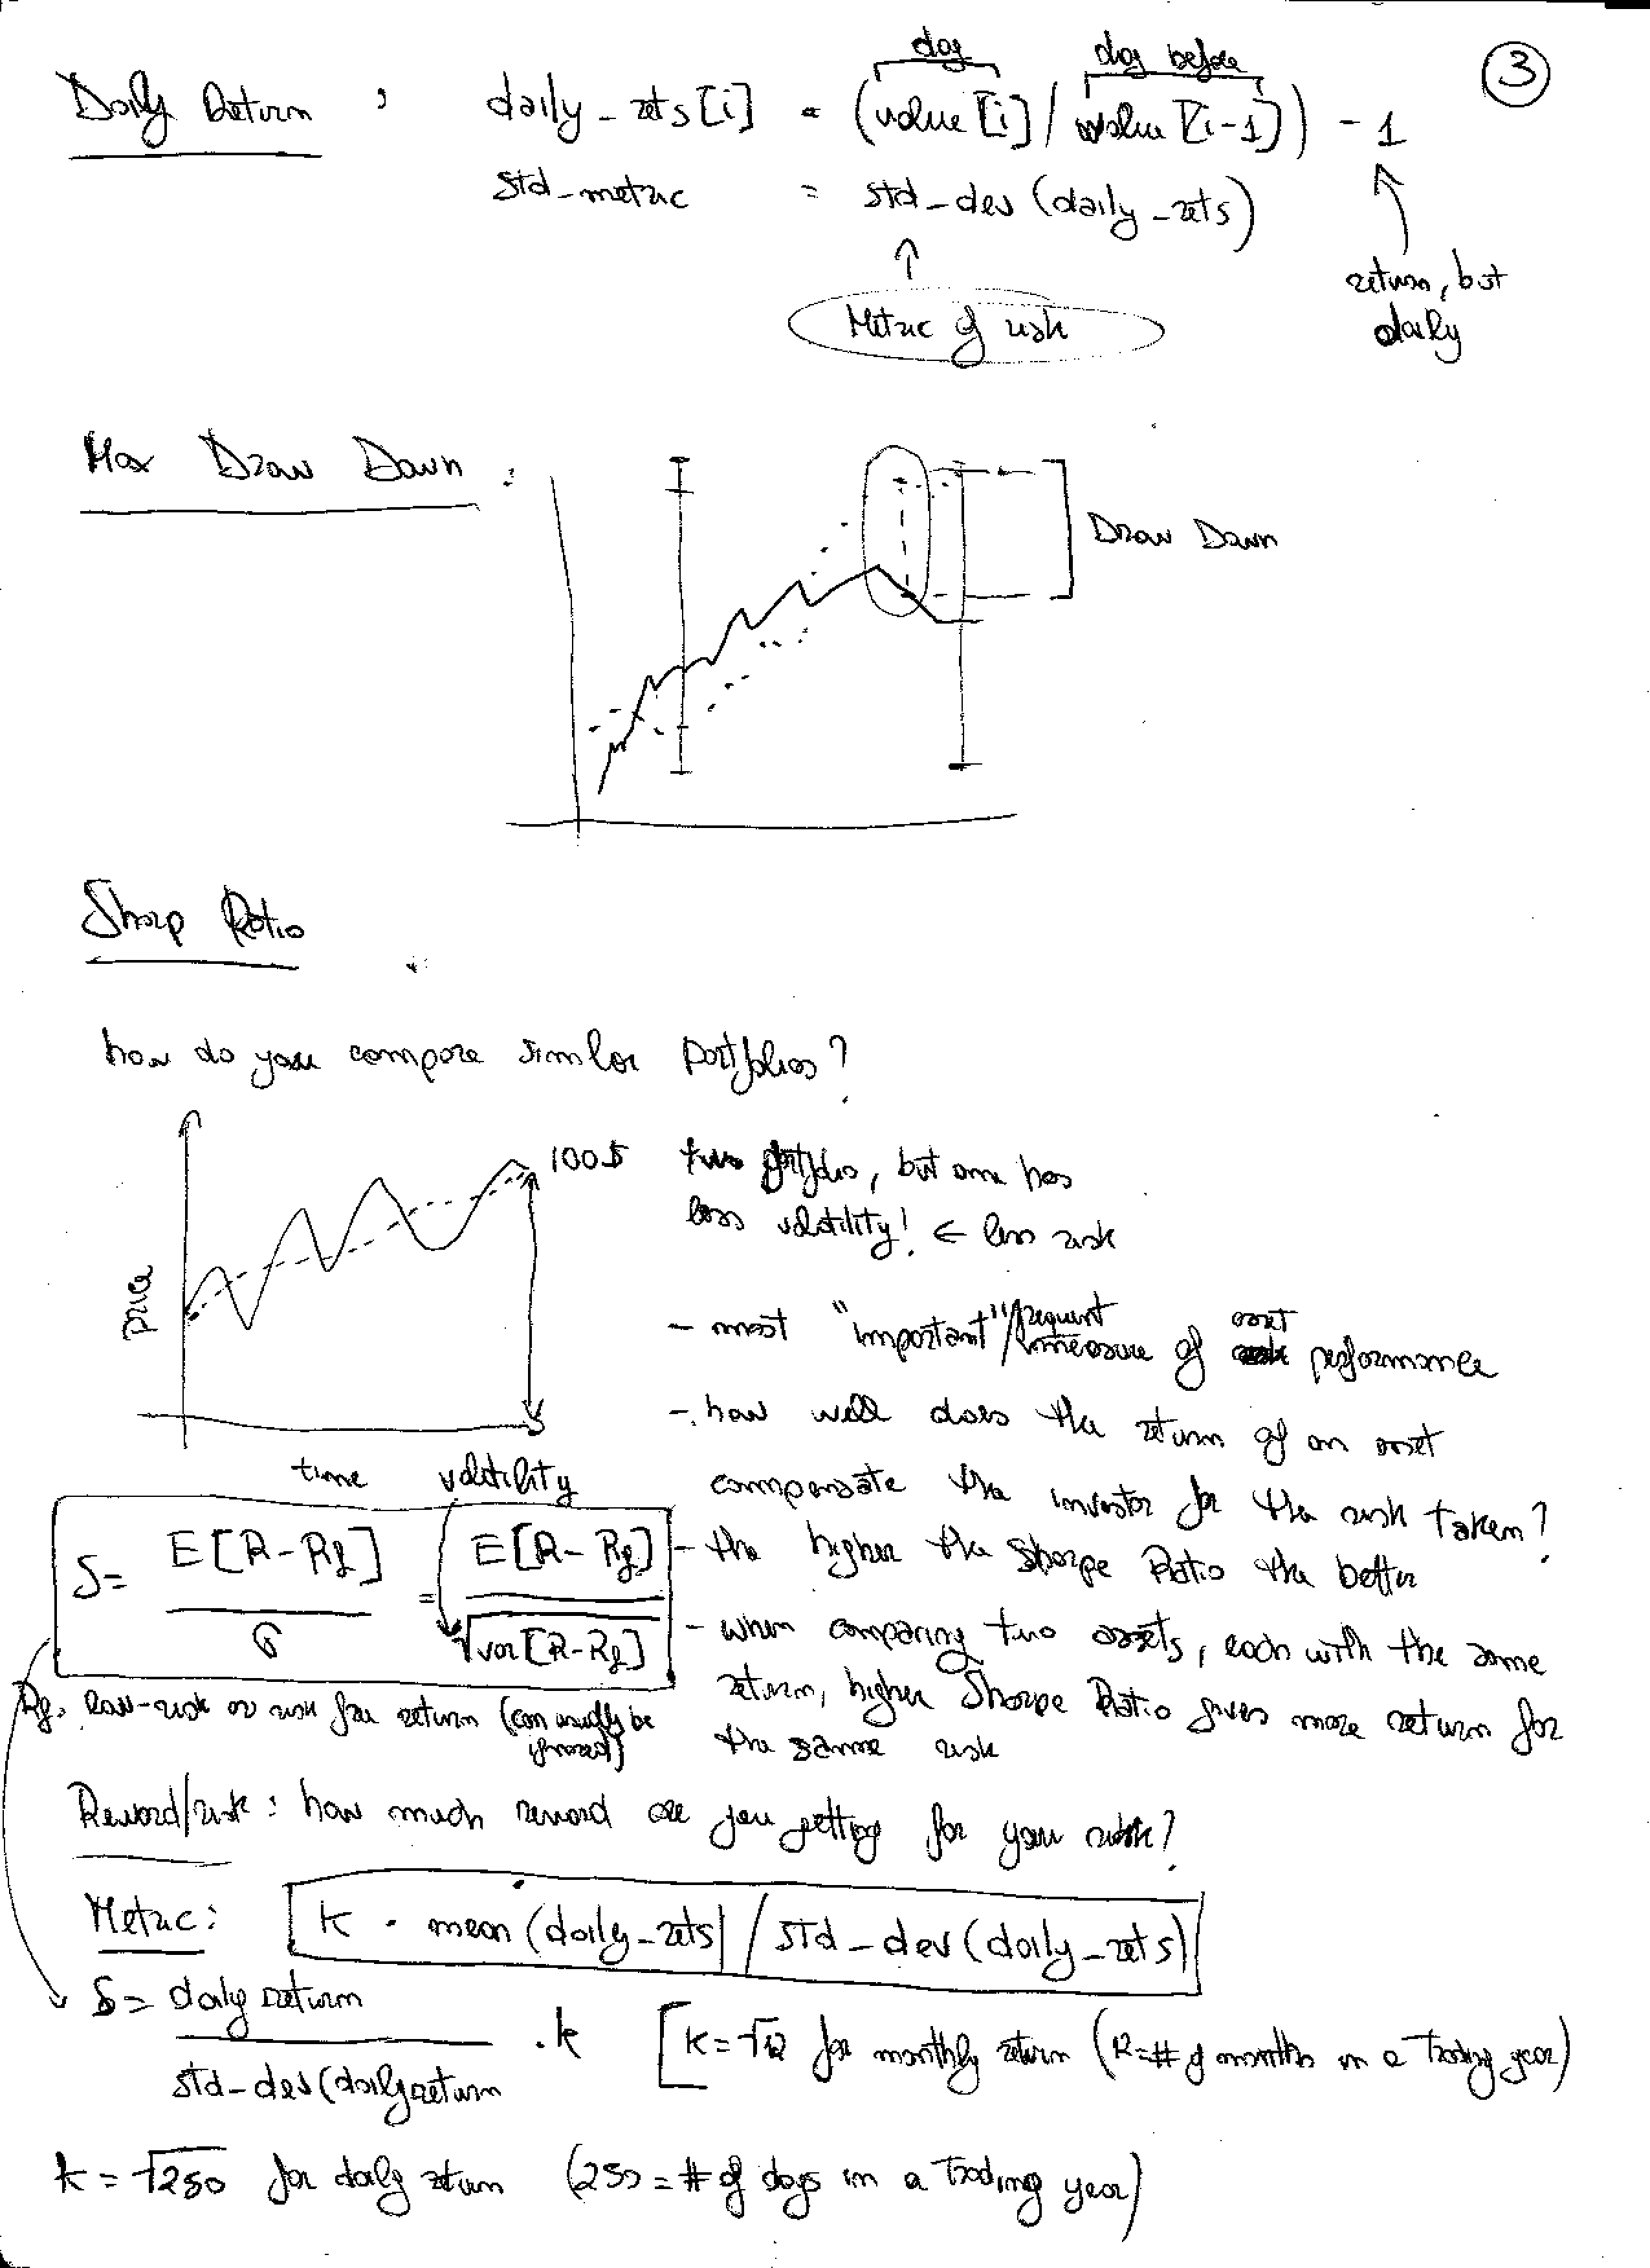 3
day day before
Daily Return : daily_rets[i] = (value[i] / value[i-1]) - 1
std_metric = std_dev (daily_rets)
Metric of risk
return, but
daily
Max Draw Down :
Draw Down
Sharp Ratio
how do you compare similar portfolios?
price
time
100$
two portfolios, but one has
less volatility! ← less risk
- most "important"/frequent measure of asset performance
- how well does the return of an asset
compensate the investor for the risk taken?
volatility
S = E[R-Rf] / σ = E[R-Rf] / √var[R-Rf]
- the higher the Sharpe Ratio the better
- when comparing two assets, each with the same
return, higher Sharpe Ratio gives more return for
the same risk
Rf: low-risk or risk free return (can usually be
ignored)
Reward/risk : how much reward are you getting for your risk?
Metric: k · mean (daily_rets) / std_dev (daily_rets)
S = daily return / std_dev (daily return · k
[k = √12 for monthly return (12 = # of months in a Trading year)
k = √250 for daily return (250 = # of days in a Trading year)